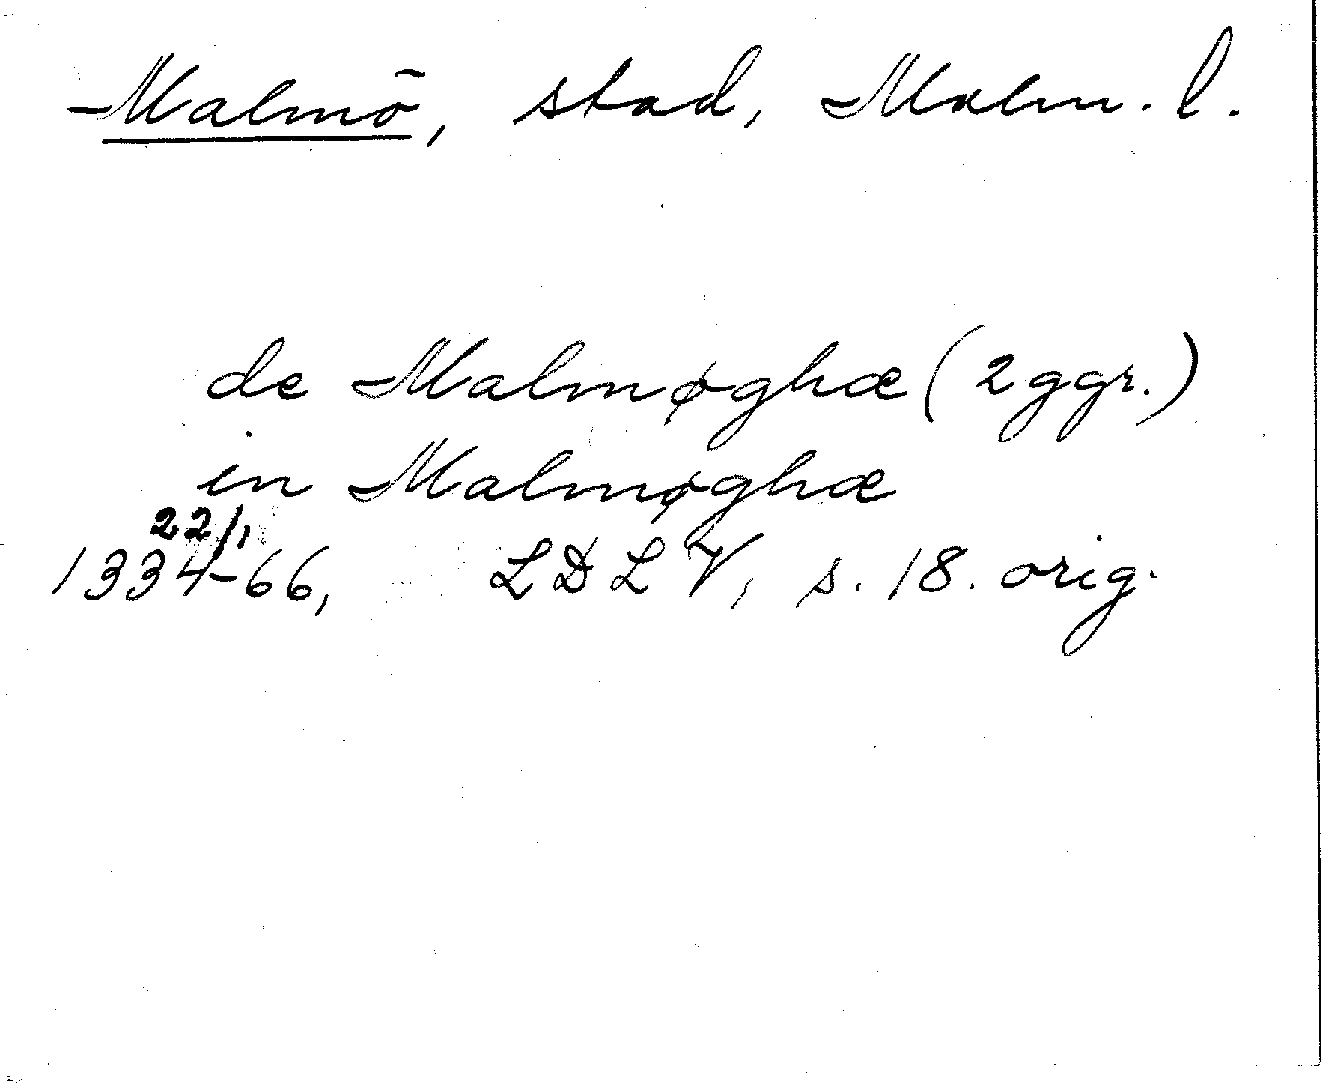 Malmö, stad, Malm. l.
de Malmøghæ (2 ggr.)
in Malmøghæ
22/1
1334-66, LDLV, s. 18. orig.